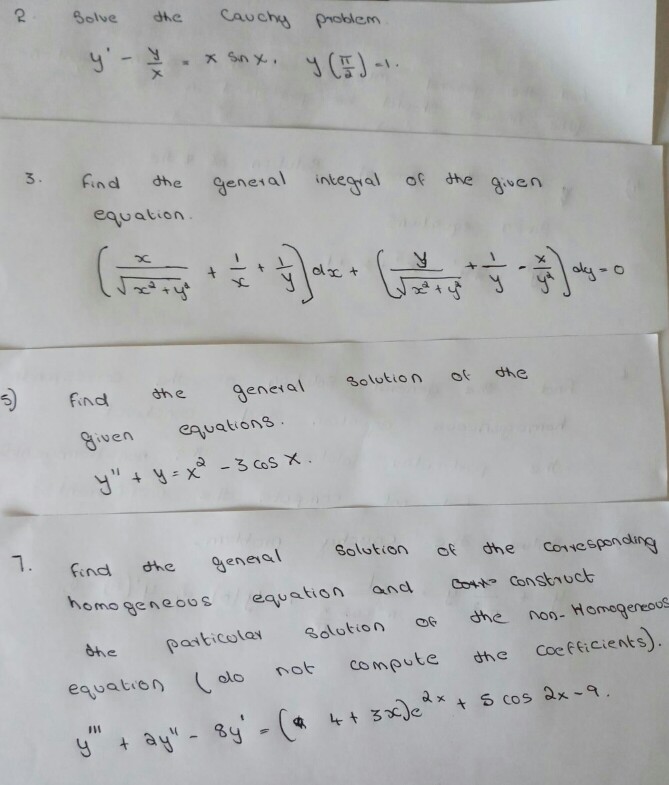 2 Solve the Cauchy problem
y' - y/x = x sn x. y(π/2) = 1.
3. find the general integral of the given
equation.
(x/√(x²+y²) + 1/x + 1/y) dx + (y/√(x²+y²) + 1/y - x/y²) dy = 0
5) find the general solution of the
given equations.
y'' + y = x² - 3 cos x.
7. find the general solution of the corresponding
homogeneous equation and construct
the particular solution of the non-Homogeneous
equation (do not compute the coefficients).
y''' + 2y'' - 8y' = (4 + 3x)e^2x + 5 cos 2x - 9.